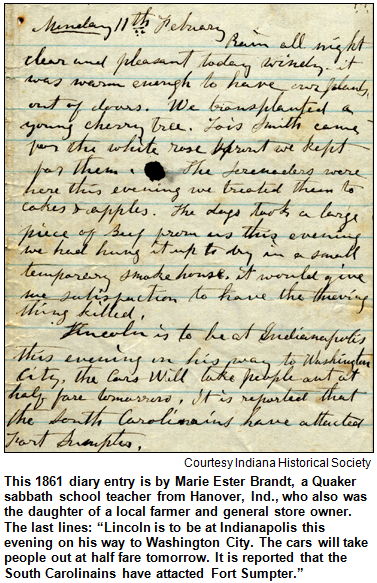 Monday 11th Febuary
Rain all night
clear and pleasant today windy. it
was warm enough to have our plants
out of doors. We transplanted a
young cherry tree. Lois Smith came
for the white rose sprout we kept
for them. The Serenaders were
here this evening we treated them to
cakes & apples. The dogs took a large
piece of Beef from us this evening
we had hung it up to dry in a small
temporary smoke house. it would give
me satisfaction to have the thieving
thing killed.
Lincoln is to be at Indianapolis
this evening on his way to Washington
City, the Cars Will take people out at
half fare tomorrow, It is reported that
the South Carolinains have attacted
Fort Sumpter.
Courtesy Indiana Historical Society
This 1861 diary entry is by Marie Ester Brandt, a Quaker
sabbath school teacher from Hanover, Ind., who also was
the daughter of a local farmer and general store owner.
The last lines: “Lincoln is to be at Indianapolis this
evening on his way to Washington City. The cars will take
people out at half fare tomorrow. It is reported that the
South Carolinains have attacted Fort Sumpter.”